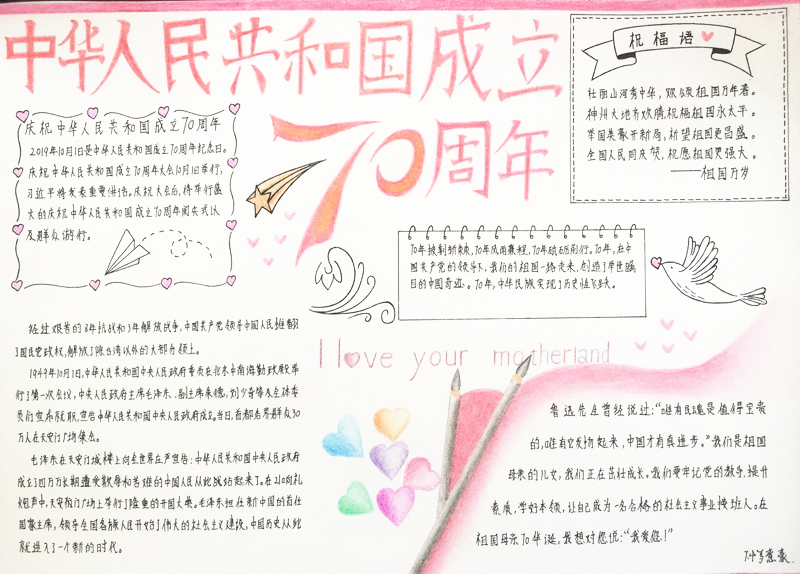 中华人民共和国成立
70周年
祝福语
壮丽山河秀中华，欢欣祖国万年春。
神州大地齐欢腾，祝福祖国永太平。
举国英豪开新局，祈望祖国更昌盛。
全国人民同庆贺，祝愿祖国更强大。
——祖国万岁
庆祝中华人民共和国成立70周年
2019年10月1日是中华人民共和国成立70周年纪念日。
庆祝中华人民共和国成立70周年大会10月1日举行，
习近平将发表重要讲话。庆祝大会后，将举行盛
大的庆祝中华人民共和国成立70周年阅兵式以
及群众游行。
70年披荆斩棘，70年风雨兼程，70年砥砺前行。70年，在中
国共产党的领导下，我们的祖国一路走来，创造了举世瞩
目的中国奇迹。70年，中华民族实现了历史性飞跃。
I love your motherland
经过艰苦的8年抗战和3年解放战争，中国共产党领导中国人民推翻
了国民党政权，解放了除台湾以外的大部分领土。
1949年10月1日，中华人民共和国中央人民政府委员在北京中南海勤政殿举
行了第一次会议，中央人民政府主席毛泽东、副主席朱德，刘少奇等及全体委
员们宣布就职，宣告中华人民共和国中央人民政府成立。当日，首都各界群众30
万人在天安门广场集会。
毛泽东在天安门城楼上向全世界庄严宣告：中华人民共和国中央人民政府
成立了！四万万长期遭受欺辱和苦难的中国人民从此站起来了。在21响礼
炮声中，天安门广场上举行了隆重的开国大典。毛泽东担任新中国的首任
国家主席，领导全国各族人民开始了伟大的社会主义建设，中国历史从此
就进入了一个新的时代。
鲁迅先生曾经说过：“唯有民魂是值得宝贵
的，唯有它发扬起来，中国才有真进步。”我们是祖国
母亲的儿女，我们正在茁壮成长。我们要牢记党的教导，提升
素质，学好本领，让自己成为一名合格的社会主义事业接班人。在
祖国母亲70华诞，我想对您说：“我爱您！”